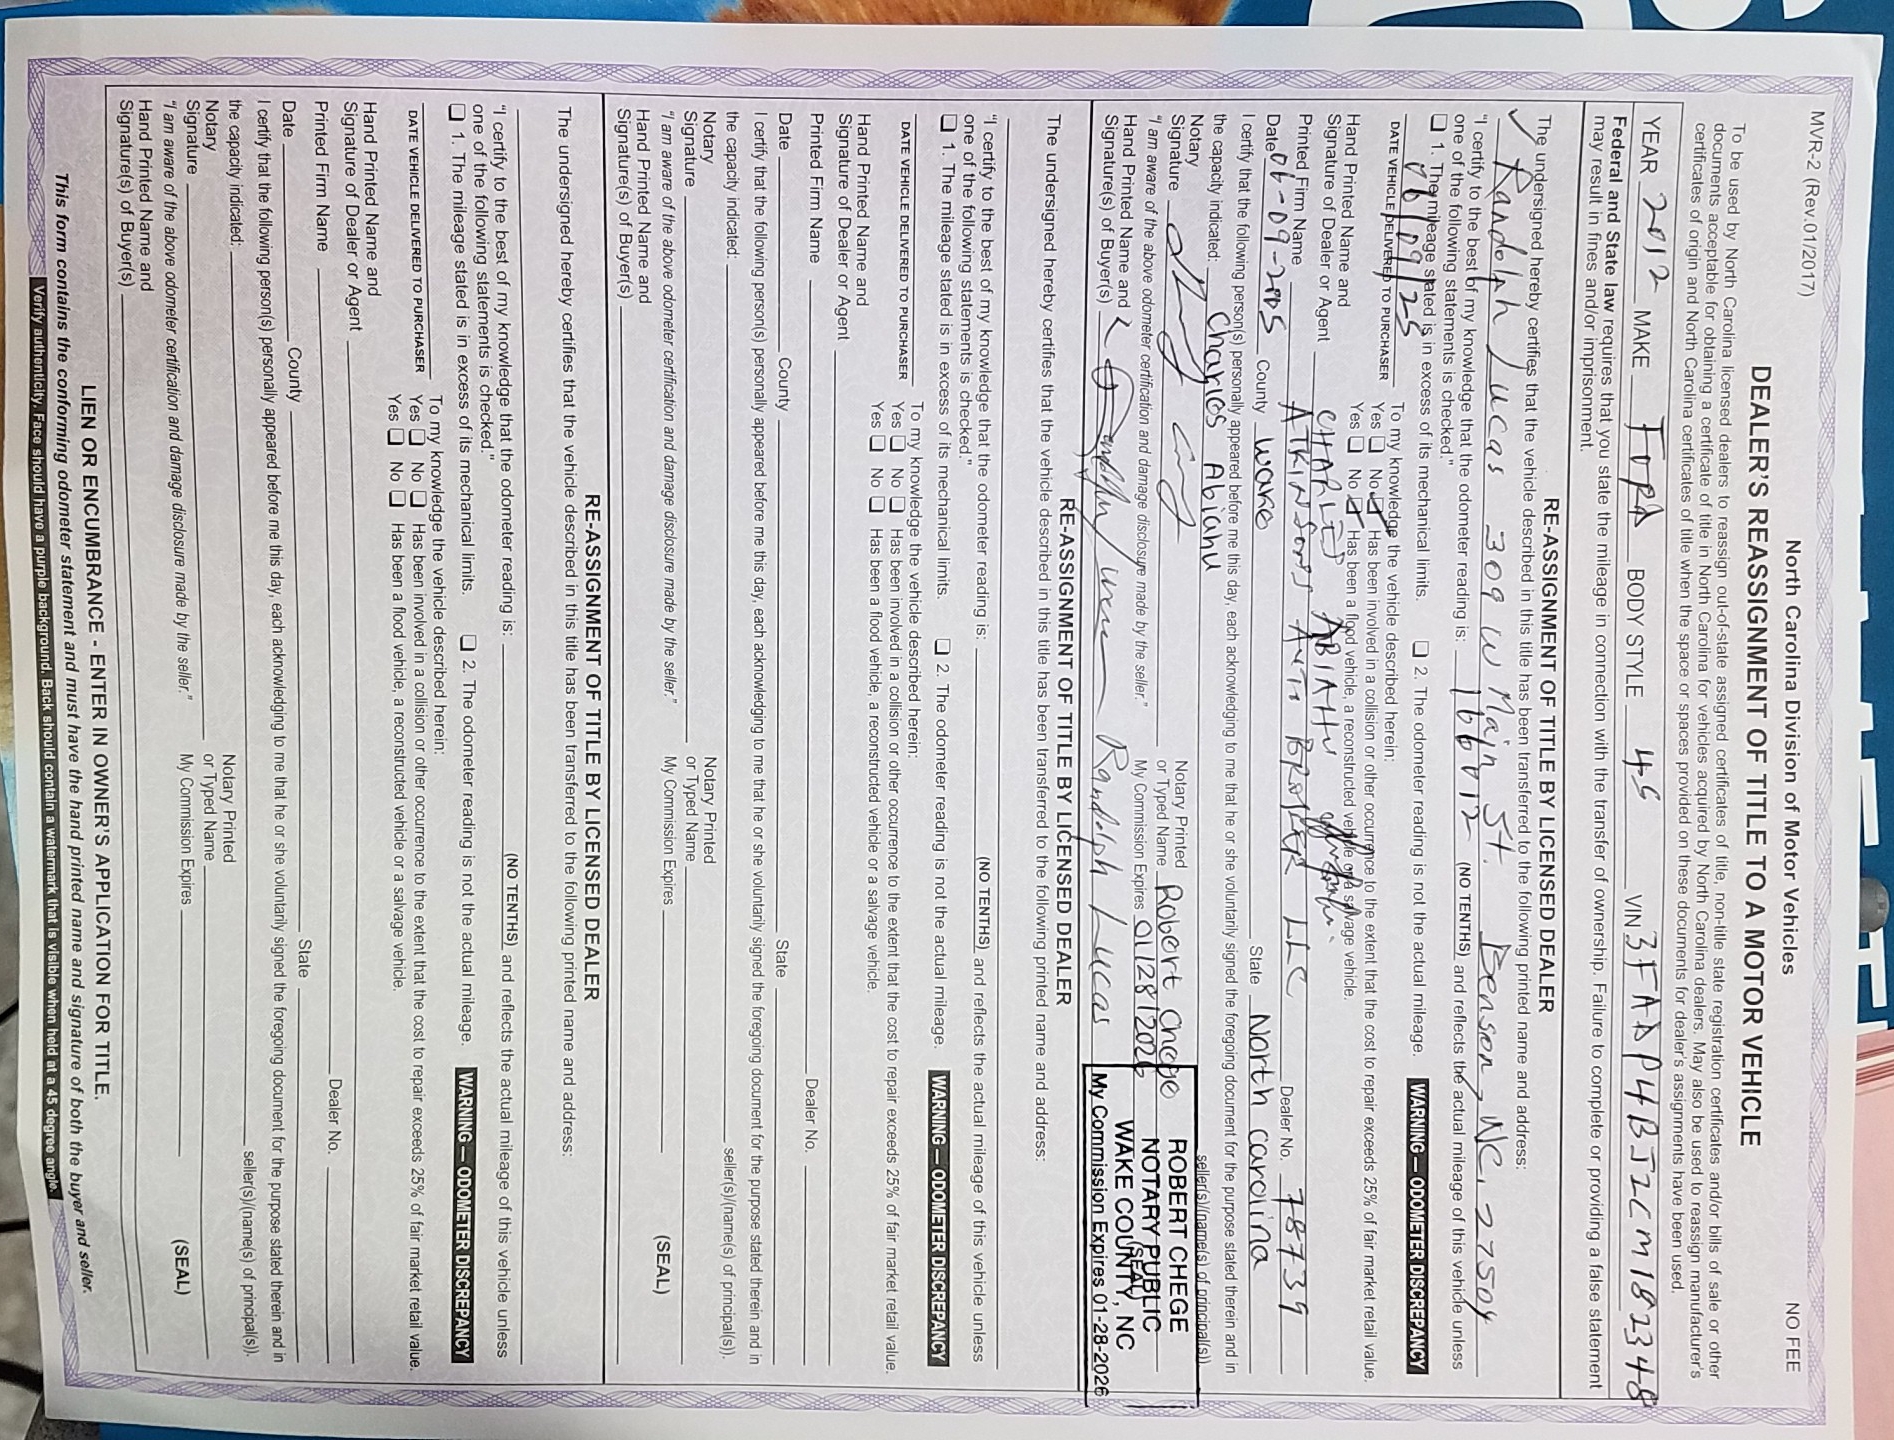 MVR-2 (Rev.01/2017)
North Carolina Division of Motor Vehicles
NO FEE
DEALER'S REASSIGNMENT OF TITLE TO A MOTOR VEHICLE
To be used by North Carolina licensed dealers to reassign out-of-state assigned certificates of title, non-title state registration certificates and/or bills of sale or other
documents acceptable for obtaining a certificate of title in North Carolina for vehicles acquired by North Carolina dealers. May also be used to reassign manufacturer's
certificates of origin and North Carolina certificates of title when the space or spaces provided on these documents for dealer's assignments have been used.
YEAR 2012 MAKE FORD BODY STYLE 4S VIN 3FAAP4BJ2CM182348
Federal and State law requires that you state the mileage in connection with the transfer of ownership. Failure to complete or providing a false statement
may result in fines and/or imprisonment.
RE-ASSIGNMENT OF TITLE BY LICENSED DEALER
The undersigned hereby certifies that the vehicle described in this title has been transferred to the following printed name and address:
Randolph Lucas 309 W Main St. Benson, NC, 27504
"I certify to the best of my knowledge that the odometer reading is: 166012 (NO TENTHS) and reflects the actual mileage of this vehicle unless
one of the following statements is checked."
1. The mileage stated is in excess of its mechanical limits. 2. The odometer reading is not the actual mileage. WARNING – ODOMETER DISCREPANCY
06/09/25 To my knowledge the vehicle described herein:
DATE VEHICLE DELIVERED TO PURCHASER Yes No Has been involved in a collision or other occurrence to the extent that the cost to repair exceeds 25% of fair market retail value.
Yes No Has been a flood vehicle, a reconstructed vehicle or a salvage vehicle.
Hand Printed Name and
Signature of Dealer or Agent CHARLES ABIAHU
Printed Firm Name ATKINSONS AUTO BROKER LLC Dealer No. 78739
Date 06-09-2005 County Wake State North Carolina
I certify that the following person(s) personally appeared before me this day, each acknowledging to me that he or she voluntarily signed the foregoing document for the purpose stated therein and in
the capacity indicated: Charles Abiahu seller(s)/(name(s) of principal(s)).
Notary Notary Printed
Signature or Typed Name Robert Chege
"I am aware of the above odometer certification and damage disclosure made by the seller." My Commission Expires 01/28/2026 (SEAL)
Hand Printed Name and
Signature(s) of Buyer(s) Randolph Lucas
ROBERT CHEGE
NOTARY PUBLIC
WAKE COUNTY, NC
My Commission Expires 01-28-2026
RE-ASSIGNMENT OF TITLE BY LICENSED DEALER
The undersigned hereby certifies that the vehicle described in this title has been transferred to the following printed name and address:
"I certify to the best of my knowledge that the odometer reading is: (NO TENTHS) and reflects the actual mileage of this vehicle unless
one of the following statements is checked."
1. The mileage stated is in excess of its mechanical limits. 2. The odometer reading is not the actual mileage. WARNING – ODOMETER DISCREPANCY
To my knowledge the vehicle described herein:
DATE VEHICLE DELIVERED TO PURCHASER Yes No Has been involved in a collision or other occurrence to the extent that the cost to repair exceeds 25% of fair market retail value.
Yes No Has been a flood vehicle, a reconstructed vehicle or a salvage vehicle.
Hand Printed Name and
Signature of Dealer or Agent
Printed Firm Name Dealer No.
Date County State
I certify that the following person(s) personally appeared before me this day, each acknowledging to me that he or she voluntarily signed the foregoing document for the purpose stated therein and in
the capacity indicated: seller(s)/(name(s) of principal(s)).
Notary Notary Printed
Signature or Typed Name
"I am aware of the above odometer certification and damage disclosure made by the seller." My Commission Expires (SEAL)
Hand Printed Name and
Signature(s) of Buyer(s)
RE-ASSIGNMENT OF TITLE BY LICENSED DEALER
The undersigned hereby certifies that the vehicle described in this title has been transferred to the following printed name and address:
"I certify to the best of my knowledge that the odometer reading is: (NO TENTHS) and reflects the actual mileage of this vehicle unless
one of the following statements is checked."
1. The mileage stated is in excess of its mechanical limits. 2. The odometer reading is not the actual mileage. WARNING – ODOMETER DISCREPANCY
To my knowledge the vehicle described herein:
DATE VEHICLE DELIVERED TO PURCHASER Yes No Has been involved in a collision or other occurrence to the extent that the cost to repair exceeds 25% of fair market retail value.
Yes No Has been a flood vehicle, a reconstructed vehicle or a salvage vehicle.
Hand Printed Name and
Signature of Dealer or Agent
Printed Firm Name Dealer No.
Date County State
I certify that the following person(s) personally appeared before me this day, each acknowledging to me that he or she voluntarily signed the foregoing document for the purpose stated therein and in
the capacity indicated: seller(s)/(name(s) of principal(s)).
Notary Notary Printed
Signature or Typed Name
"I am aware of the above odometer certification and damage disclosure made by the seller." My Commission Expires (SEAL)
Hand Printed Name and
Signature(s) of Buyer(s)
LIEN OR ENCUMBRANCE - ENTER IN OWNER'S APPLICATION FOR TITLE.
This form contains the conforming odometer statement and must have the hand printed name and signature of both the buyer and seller.
Verify authenticity. Face should have a purple background. Back should contain a watermark that is visible when held at a 45 degree angle.